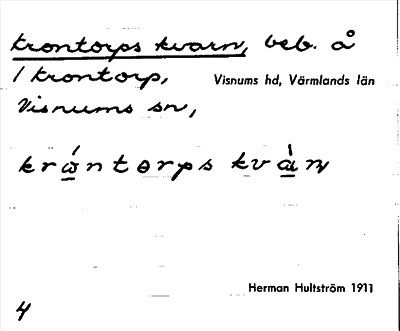 Krontorps kvarn, beb. å
1 Krontorp,
Visnums hd, Värmlands län
Visnums sn,
krώ̲ntɵrps kvà̲ɳ
Herman Hultström 1911
4